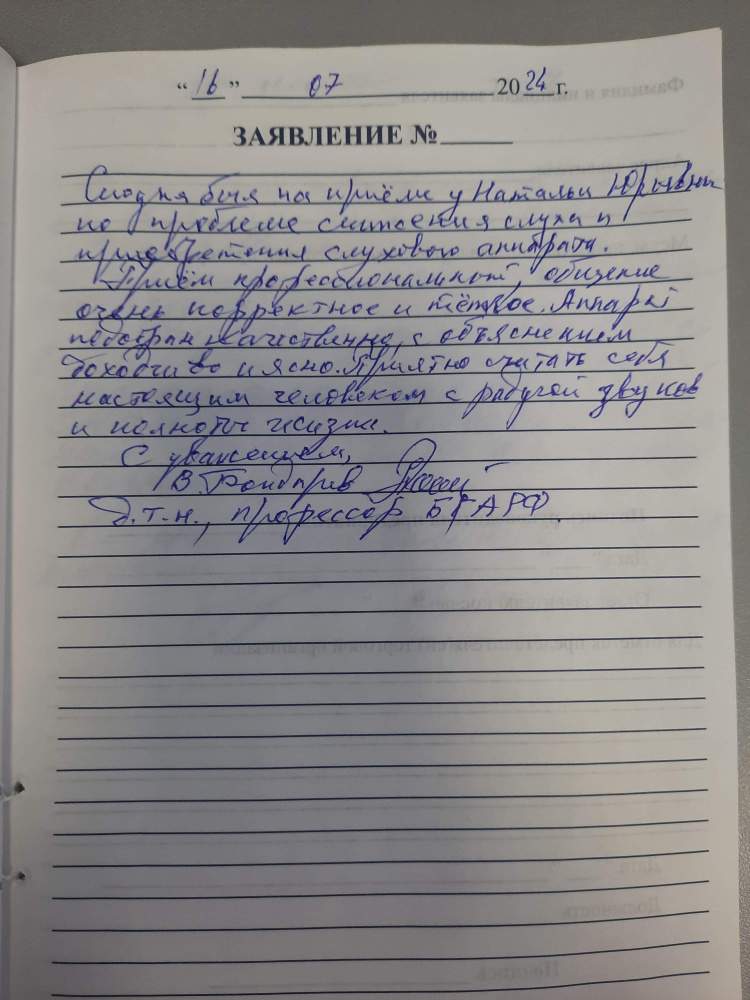 “16” 07 2024 г.
ЗАЯВЛЕНИЕ №
Сегодня был на приёме у Натальи Юрьевны
по проблеме снижения слуха и
приобретения слухового аппарата.
Приём профессиональный, общение
очень корректное и тёплое. Аппарат
подобран качественно, с объяснением
доходчиво и ясно. Приятно считать себя
настоящим человеком с радугой звуков
и полноты жизни.
С уважением,
В.
д.т.н., профессор БГАРФ.